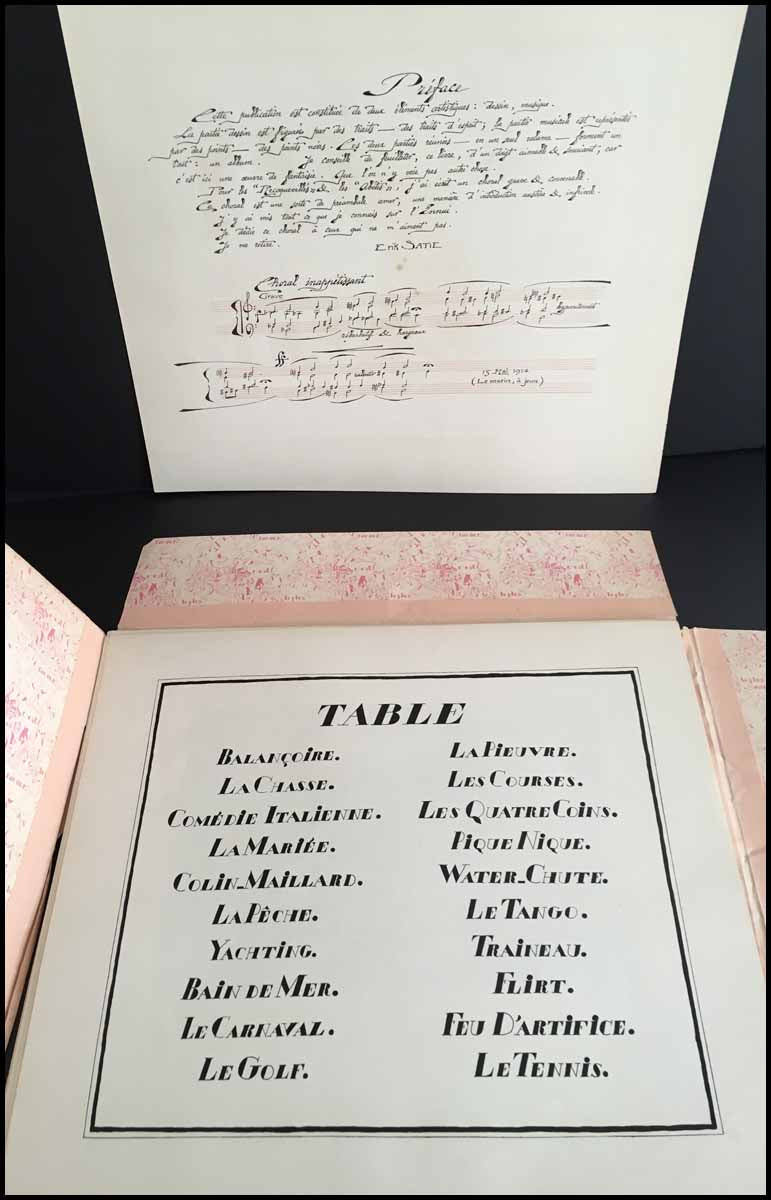 Préface
Cette publication est constituée de deux éléments artistiques: dessin, musique.
La partie dessin est figurée par des traits — des traits d'esprit; la partie musicale est représentée
par des points — des points noirs. Ces deux parties réunies — en un seul volume — forment un
tout: un album. Je conseille de feuilleter, ce livre, d'un doigt aimable & souriant; car
c'est ici une œuvre de fantaisie. Que l'on n'y voie pas autre chose.
Pour les "Recroquevillés" & les "Abêtis", j'ai écrit un choral grave & convenable.
Ce choral est une sorte de préambule amer, une manière d'introduction austère & infrivole.
J'y ai mis tout ce que je connais sur l'Ennui.
Je dédie ce choral à ceux qui ne m'aiment pas.
Je me retire.
ERIK SATIE
Choral inappétissant
Grave
rébarbatif & hargneux
hypocritement
ralentir
15 Mai 1914
(Le matin, à jeun)
TABLE
BALANÇOIRE.
LA CHASSE.
COMÉDIE ITALIENNE.
LA MARIÉE.
COLIN-MAILLARD.
LA PÊCHE.
YACHTING.
BAIN DE MER.
LE CARNAVAL.
LE GOLF.
LA PIEUVRE.
LES COURSES.
LES QUATRE COINS.
PIQUE NIQUE.
WATER-CHUTE.
LE TANGO.
TRAINEAU.
FLIRT.
FEU D'ARTIFICE.
LE TENNIS.